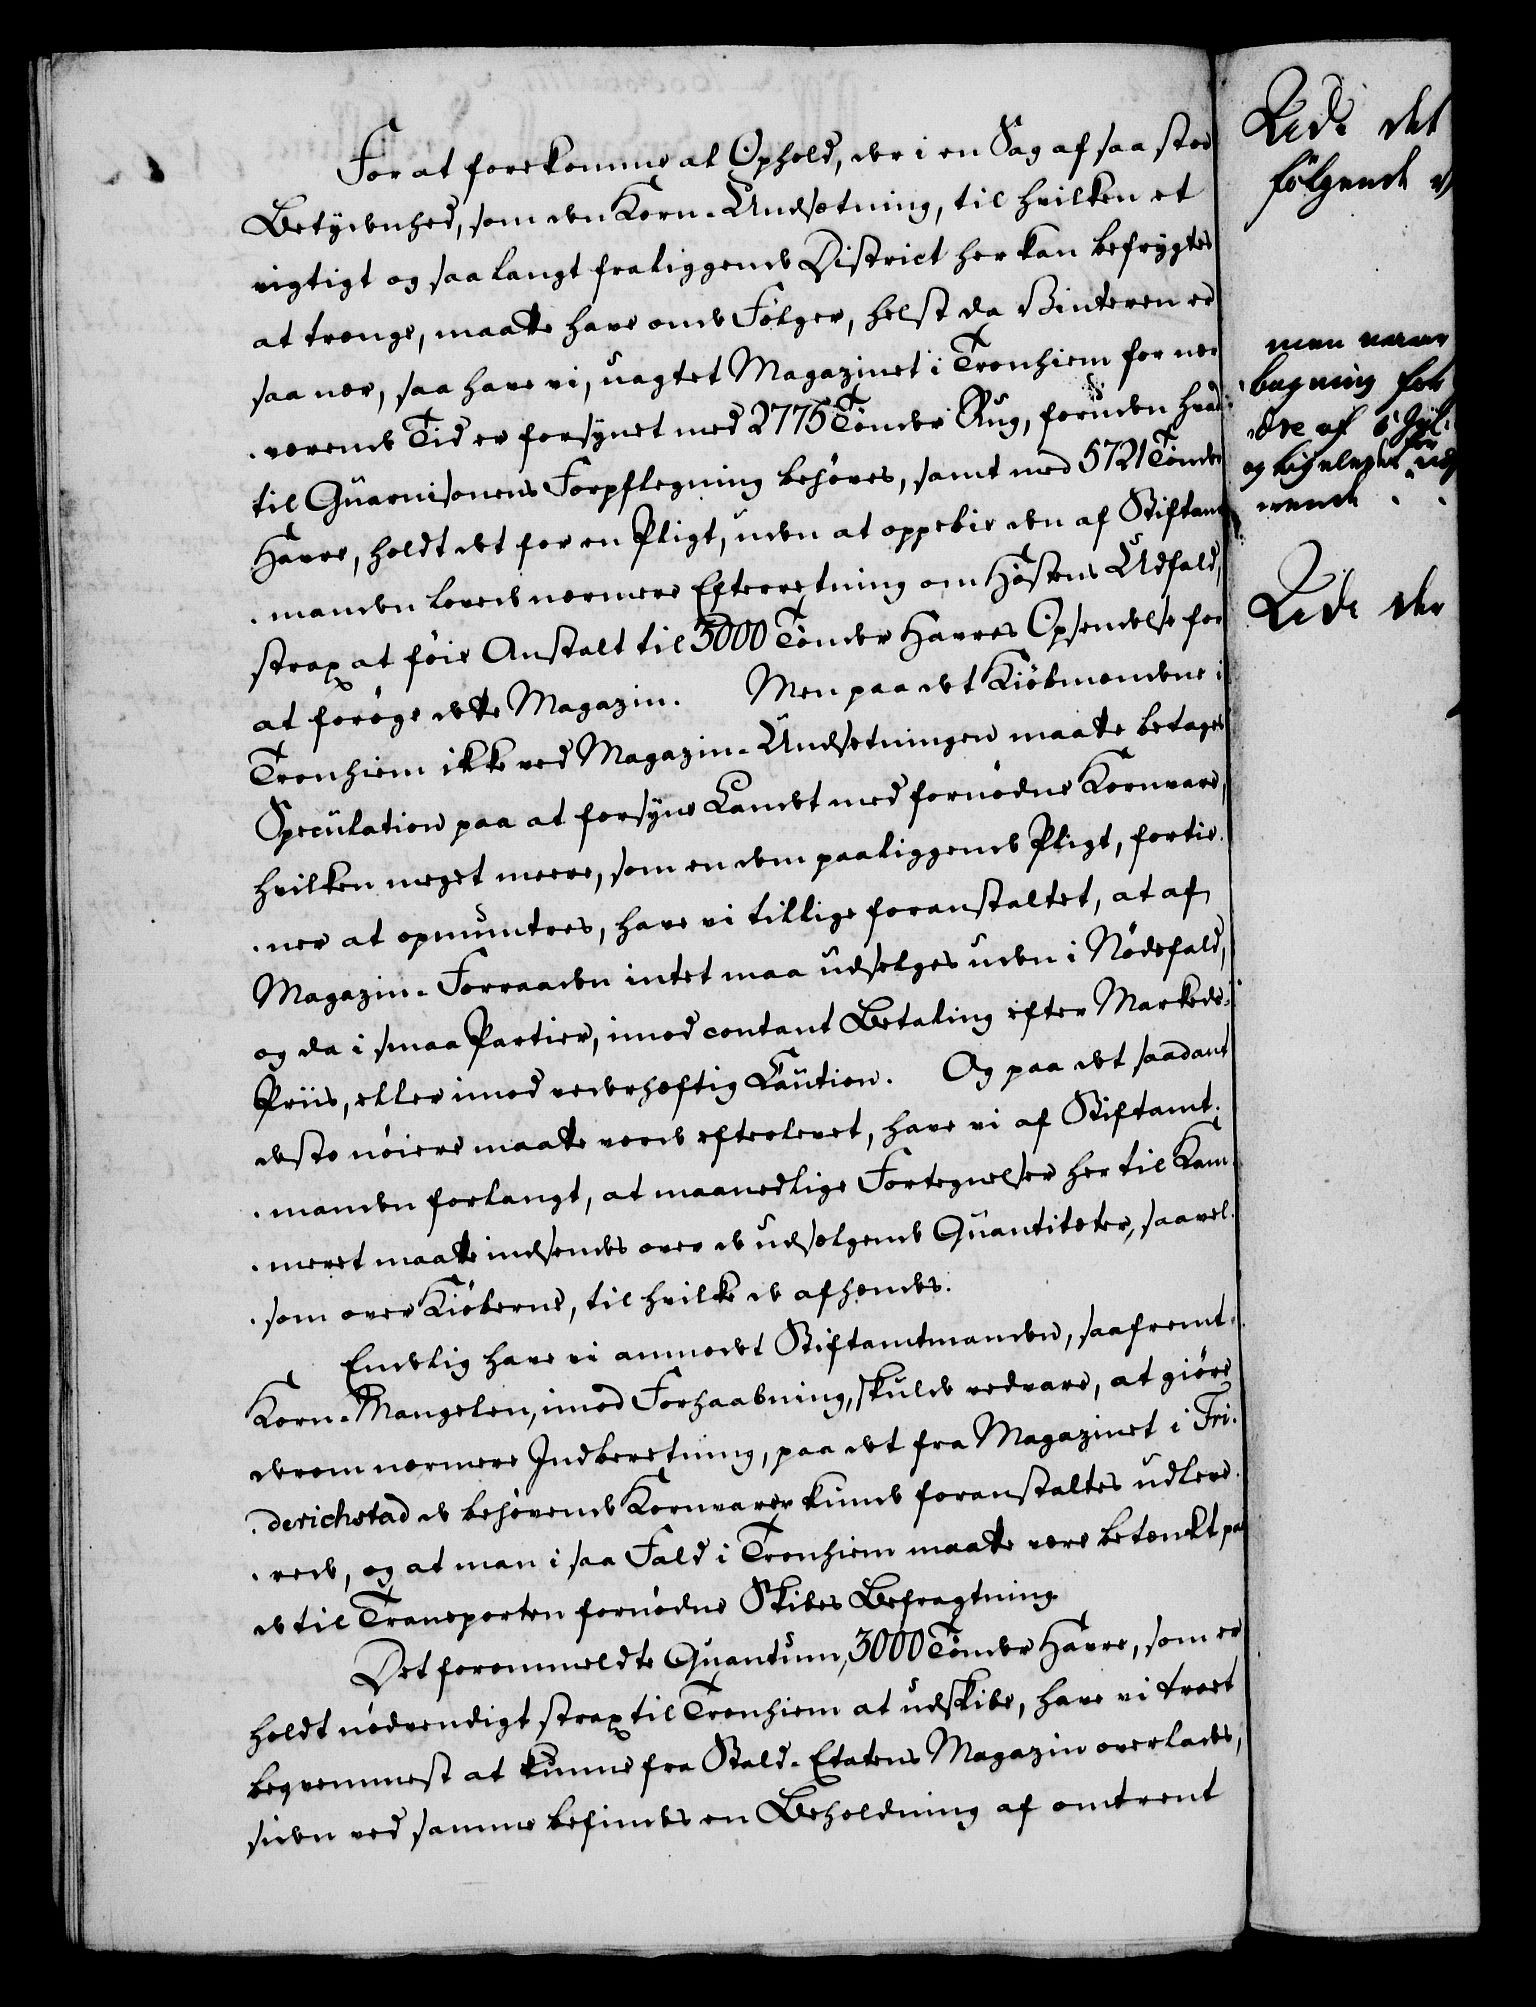 For at forekomme at Ophold, der i en Sag af saa stor
Betydenhed, som den Korn-Undsætning, til hvilken et
vigtigt og saa langt fraliggende District her kan befrygtes
at trænge, maatte have onde Følger, helst da Vinteren er
saa nær, saa have vi, uagtet Magazinet i Tronhiem for nær
værende Tid er forsynet med 2775 Tønder Rug, foruden hvad
til Guarnisonens Forpflegning behøves, samt med 5721 Tønder
Havre, holdt det for en Pligt, uden at oppebie den af Stiftamt
manden lovede nærmere Efterretning om Høstens Udfald,
strax at føie Anstalt til 3000 Tønder Havres Opsendelse for
at forøge dette Magazin. Men paa det Kiøbmændene i
Tronhiem ikke ved Magazin-Undsætningen maatte betages
Speculation paa at forsyne Landet med fornødne Kornvare,
hvilken meget meere, som en dem paaliggende Pligt, fortie-
ner at opmuntres, have vi tillige foranstaltet, at af
Magazin-Forraaden intet maa udsælges uden i Nødsfald,
og da i smaa Partier, imod contant Betaling efter Markeds-
Priis, eller imod vederhæftig Caution. Og paa det saadant
desto nøiere maatte vorde efterlevet, have vi af Stiftamt-
manden forlangt, at maanedlige Fortegnelser her til Kam-
meret maatte indsendes over de udsælgende Quantiteter, saavel-
som over Kiøberne, til hvilke de afhændes.
Endelig have vi anmodet Stiftamtmanden, saafremt
Korn-Mangelen, imod Forhaabning, skulde vedvare, at giøre
derom nærmere Indberetning, paa det fra Magazinet i Fri-
derichstad de behøvende Kornvarer kunde foranstaltes udleve-
rede, og at man i saa Fald i Tronhiem maatte være betænkt paa
de til Transporten fornødne Skibes Befragtning.
Det forommeldte Quantum, 3000 Tønder Havre, som er
holdt nødvendigt strax til Tronhiem at udskibe, have vi troet
beqvemmest at kunne fra Stald-Etatens Magazin overlades,
siden ved samme befindes en Beholdning af omtrent
det
følgende
men
og
der